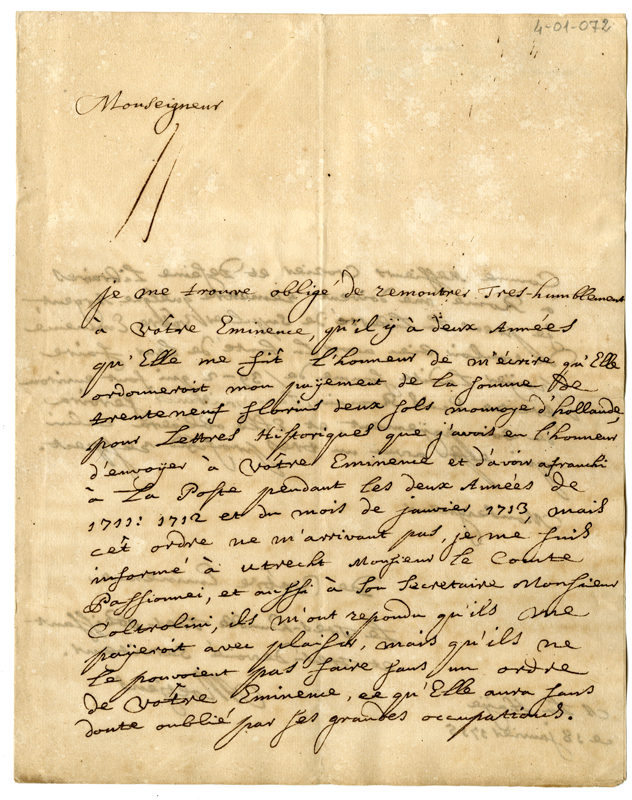 4-01-072
Monseigneur
je me trouve obligé de remontrer Tres-humblement
à Vôtre Eminence, qu'il ÿ à deux Années
qu'Elle me fit l'honneur de m'écrire qu'Elle
ordonneroit mon payement de la somme de
trenteneuf florins deux sols monnoye d'hollande,
pour Lettres Historiques que j'avois eu l'honneur
d'envoyer à Vôtre Eminence et d'avoir afranchi
à La Poste pendant les deux Années de
1711: 1712 et du mois de janvier 1713, mais
cet ordre ne m'arrivant pas, je me suis
informé à Utrecht Monsieur le Comte
Passionnei, et aussi à son Secretaire Monsieur
Coltrolini, ils m'ont repondu qu'ils me
payeroit avec plaisir, mais qu'ils ne
le pouvoient pas faire sans un ordre
de Vôtre Eminence, ce qu'Elle aura sans
doute oublié par ses grandes occupations.